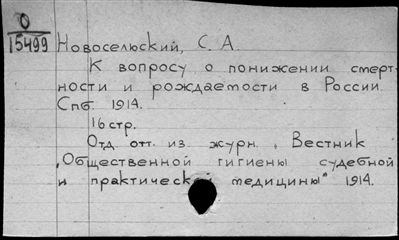 О
15499
Новосельский, С. А.
К вопросу о понижении смерт-
ности и рождаемости в России.
Спб. 1914.
16 стр.
Отд отт. из журн. „Вестник
„Общественной гигиены судебной
и практической медицины" 1914.